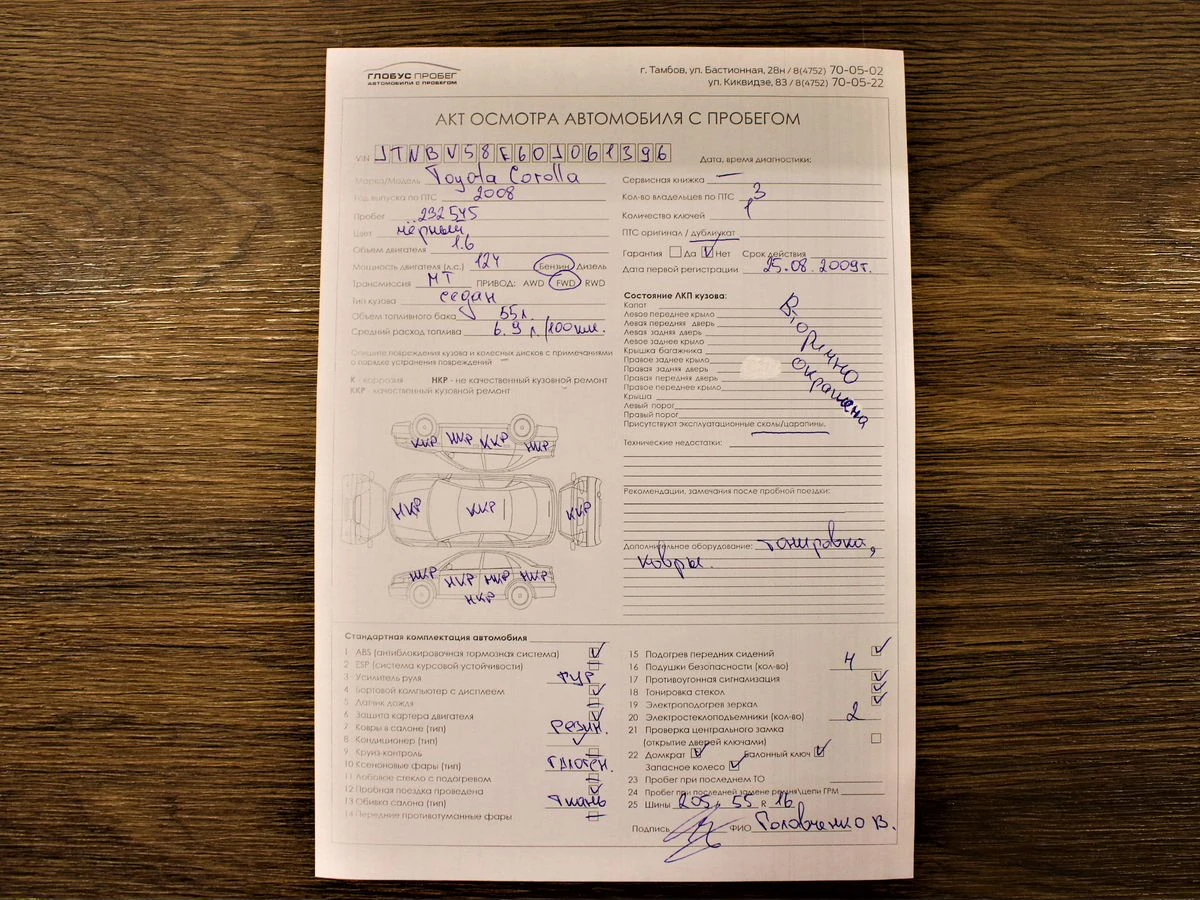 ГЛОБУС ПРОБЕГ
АВТОМОБИЛИ С ПРОБЕГОМ
г. Тамбов, ул. Бастионная, 28н / 8(4752) 70-05-02
ул. Киквидзе, 83 / 8(4752) 70-05-22
АКТ ОСМОТРА АВТОМОБИЛЯ С ПРОБЕГОМ
VIN JTNBV58E60J061396
Марка/Модель Toyota Corolla
Год выпуска по ПТС 2008
Пробег 232545
Цвет чёрный
Объем двигателя 1.6
Мощность двигателя (л.с.) 124 Бензин Дизель
Трансмиссия МТ ПРИВОД: AWD FWD RWD
Тип кузова седан
Объем топливного бака 55 л.
Средний расход топлива 6.9 л/100 км.
Опишите повреждения кузова и колесных дисков с примечаниями
о порядке устранения повреждений –
К - коррозия НКР - не качественный кузовной ремонт
ККР - качественный кузовной ремонт
ККР НКР ККР НКР
НКР ККР ККР
НКР НКР НКР НКР
НКР
Дата, время диагностики:
Сервисная книжка —
Кол-во владельцев по ПТС 3
Количество ключей 1
ПТС оригинал / дубликат
Гарантия Да Нет Срок действия
Дата первой регистрации 25.08.2009г.
Состояние ЛКП кузова:
Капот
Левое переднее крыло
Левая передняя дверь
Левая задняя дверь
Левое заднее крыло
Крышка багажника
Правое заднее крыло
Правая задняя дверь
Правая передняя дверь
Правое переднее крыло
Крыша
Левый порог
Правый порог
Вторично
окрашена
Присутствуют эксплуатационные сколы/царапины.
Технические недостатки:
Рекомендации, замечания после пробной поездки:
Дополнительное оборудование: тонировка,
ковры.
Стандартная комплектация автомобиля
1 ABS (антиблокировочная тормозная система)
2 ESP (система курсовой устойчивости)
3 Усилитель руля ГУР
4 Бортовой компьютер с дисплеем
5 Датчик дождя
6 Защита картера двигателя
7 Ковры в салоне (тип) резин.
8 Кондиционер (тип)
9 Круиз-контроль
10 Ксеноновые фары (тип) галоген.
11 Лобовое стекло с подогревом
12 Пробная поездка проведена
13 Обивка салона (тип) ткань
14 Передние противотуманные фары
15 Подогрев передних сидений
16 Подушки безопасности (кол-во) 4
17 Противоугонная сигнализация
18 Тонировка стекол
19 Электроподогрев зеркал
20 Электростеклоподъемники (кол-во) 2
21 Проверка центрального замка
(открытие дверей ключами)
22 Домкрат Балонный ключ
Запасное колесо
23 Пробег при последнем ТО
24 Пробег при последней замене ремня\цепи ГРМ
25 Шины 205 / 55 R 16
Подпись ФИО Головченко В.